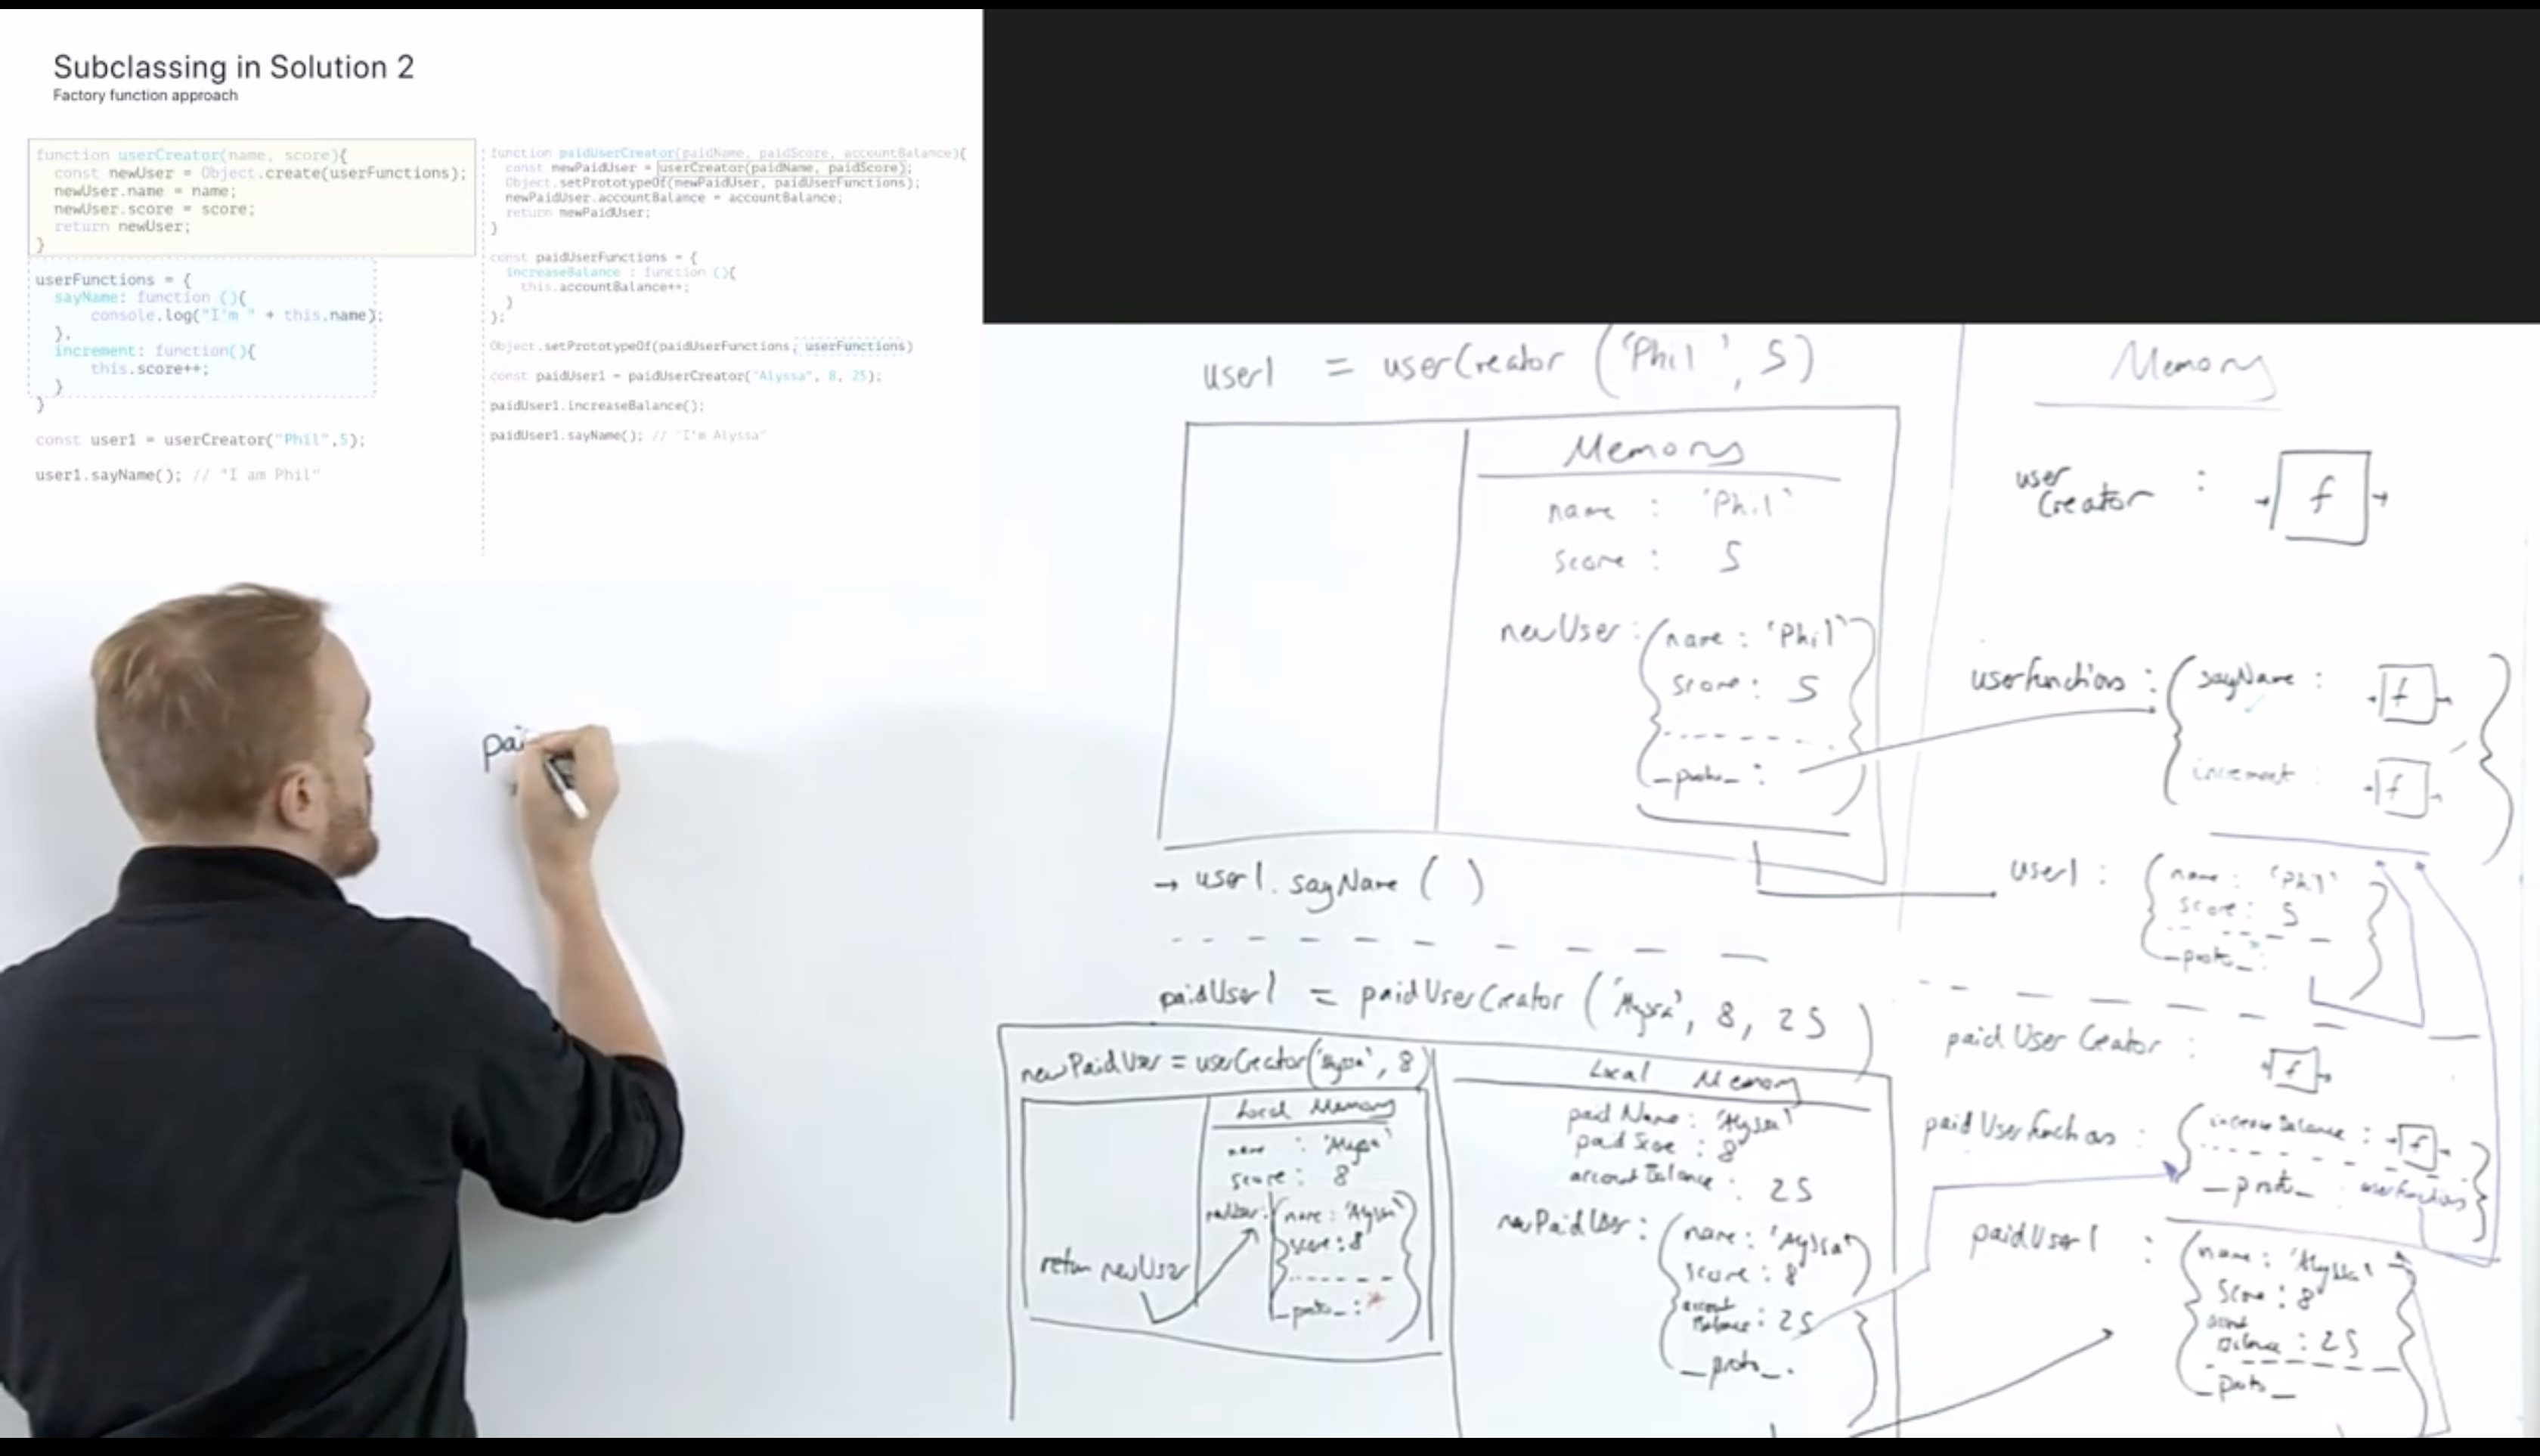 Subclassing in Solution 2
Factory function approach
function userCreator(name, score){
const newUser = Object.create(userFunctions);
newUser.name = name;
newUser.score = score;
return newUser;
}
userFunctions = {
sayName: function (){
console.log("I'm " + this.name);
},
increment: function(){
this.score++;
}
}
const user1 = userCreator("Phil",5);
user1.sayName(); // "I am Phil"
function paidUserCreator(paidName, paidScore, accountBalance){
const newPaidUser = userCreator(paidName, paidScore);
Object.setPrototypeOf(newPaidUser, paidUserFunctions);
newPaidUser.accountBalance = accountBalance;
return newPaidUser;
}
const paidUserFunctions = {
increaseBalance : function (){
this.accountBalance++;
}
};
Object.setPrototypeOf(paidUserFunctions, userFunctions)
const paidUser1 = paidUserCreator("Alyssa", 8, 25);
paidUser1.increaseBalance();
paidUser1.sayName(); // "I'm Alyssa"
pai
user1 = userCreator ('Phil', 5)
Memory
name : 'Phil'
score : 5
newUser : { name : 'Phil'
score : 5
__proto__ :
}
→ user1.sayName ( )
paidUser1 = paidUserCreator ('Alyssa', 8, 25)
newPaidUser = userCreator('Alyssa', 8)
Local Memory
name : 'Alyssa'
score : 8
newUser: { name : 'Alyssa'
score : 8
__proto__ : *
}
return newUser
Local Memory
paid Name : 'Alyssa'
paid Score : 8
account Balance : 25
newPaidUser : { name : 'Alyssa'
score : 8
account
Balance : 25
__proto__
}
Memory
user
Creator : f
userFunctions : { sayName : f
increment : f
}
user1 : { name : 'Phil'
score : 5
__proto__
}
paid User Creator : f
paid UserFunctions : { increaseBalance : f
__proto__ : userFunctions
}
paidUser1 : { name : 'Alyssa'
Score : 8
Balance : 25
__proto__